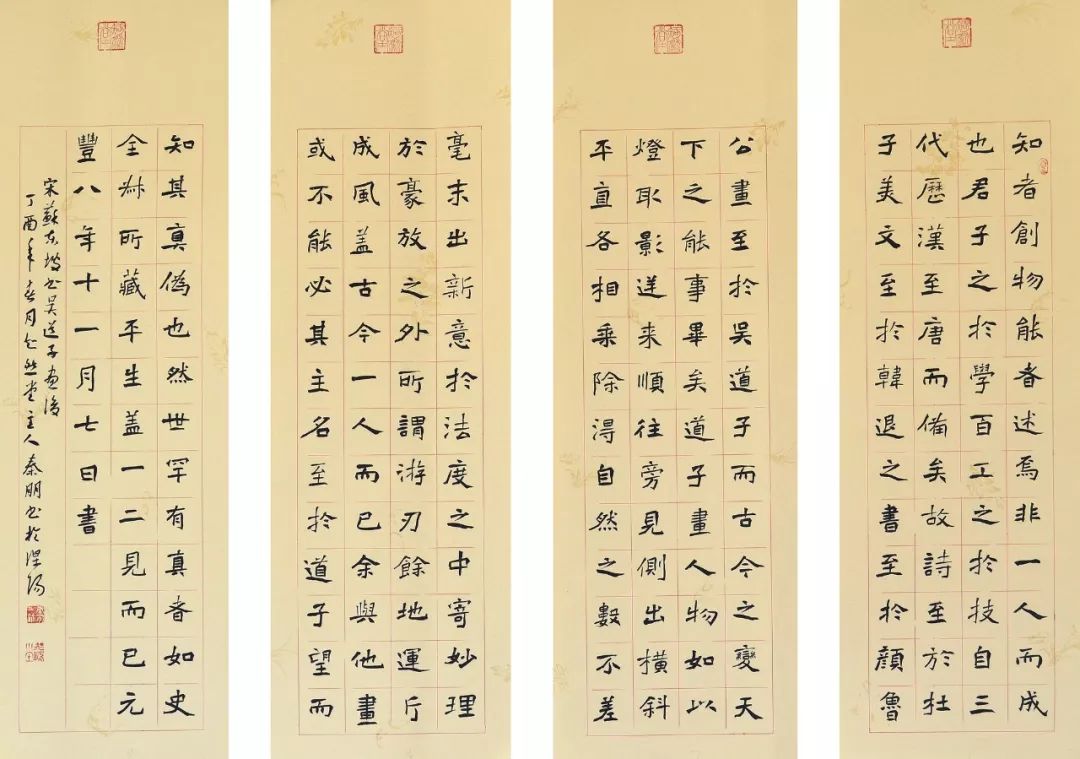 知者創物能者述焉非一人而成
也君子之於學百工之於技自三
代歷漢至唐而備矣故詩至於杜
子美文至於韓退之書至於顏魯
公畫至於吳道子而古今之變天
下之能事畢矣道子畫人物如以
燈取影逆來順往旁見側出橫斜
平直各相乘除得自然之數不差
毫末出新意於法度之中寄妙理
於豪放之外所謂游刃餘地運斤
成風盖古今一人而已余與他畫
或不能必其主名至於道子望而
知其真偽也然世罕有真者如史
全叔所藏平生盖一二見而已元
豐八年十一月七日書
宋蘇東坡書吳道子畫後
丁酉年春月之然堂主人秦朋書於涅陽